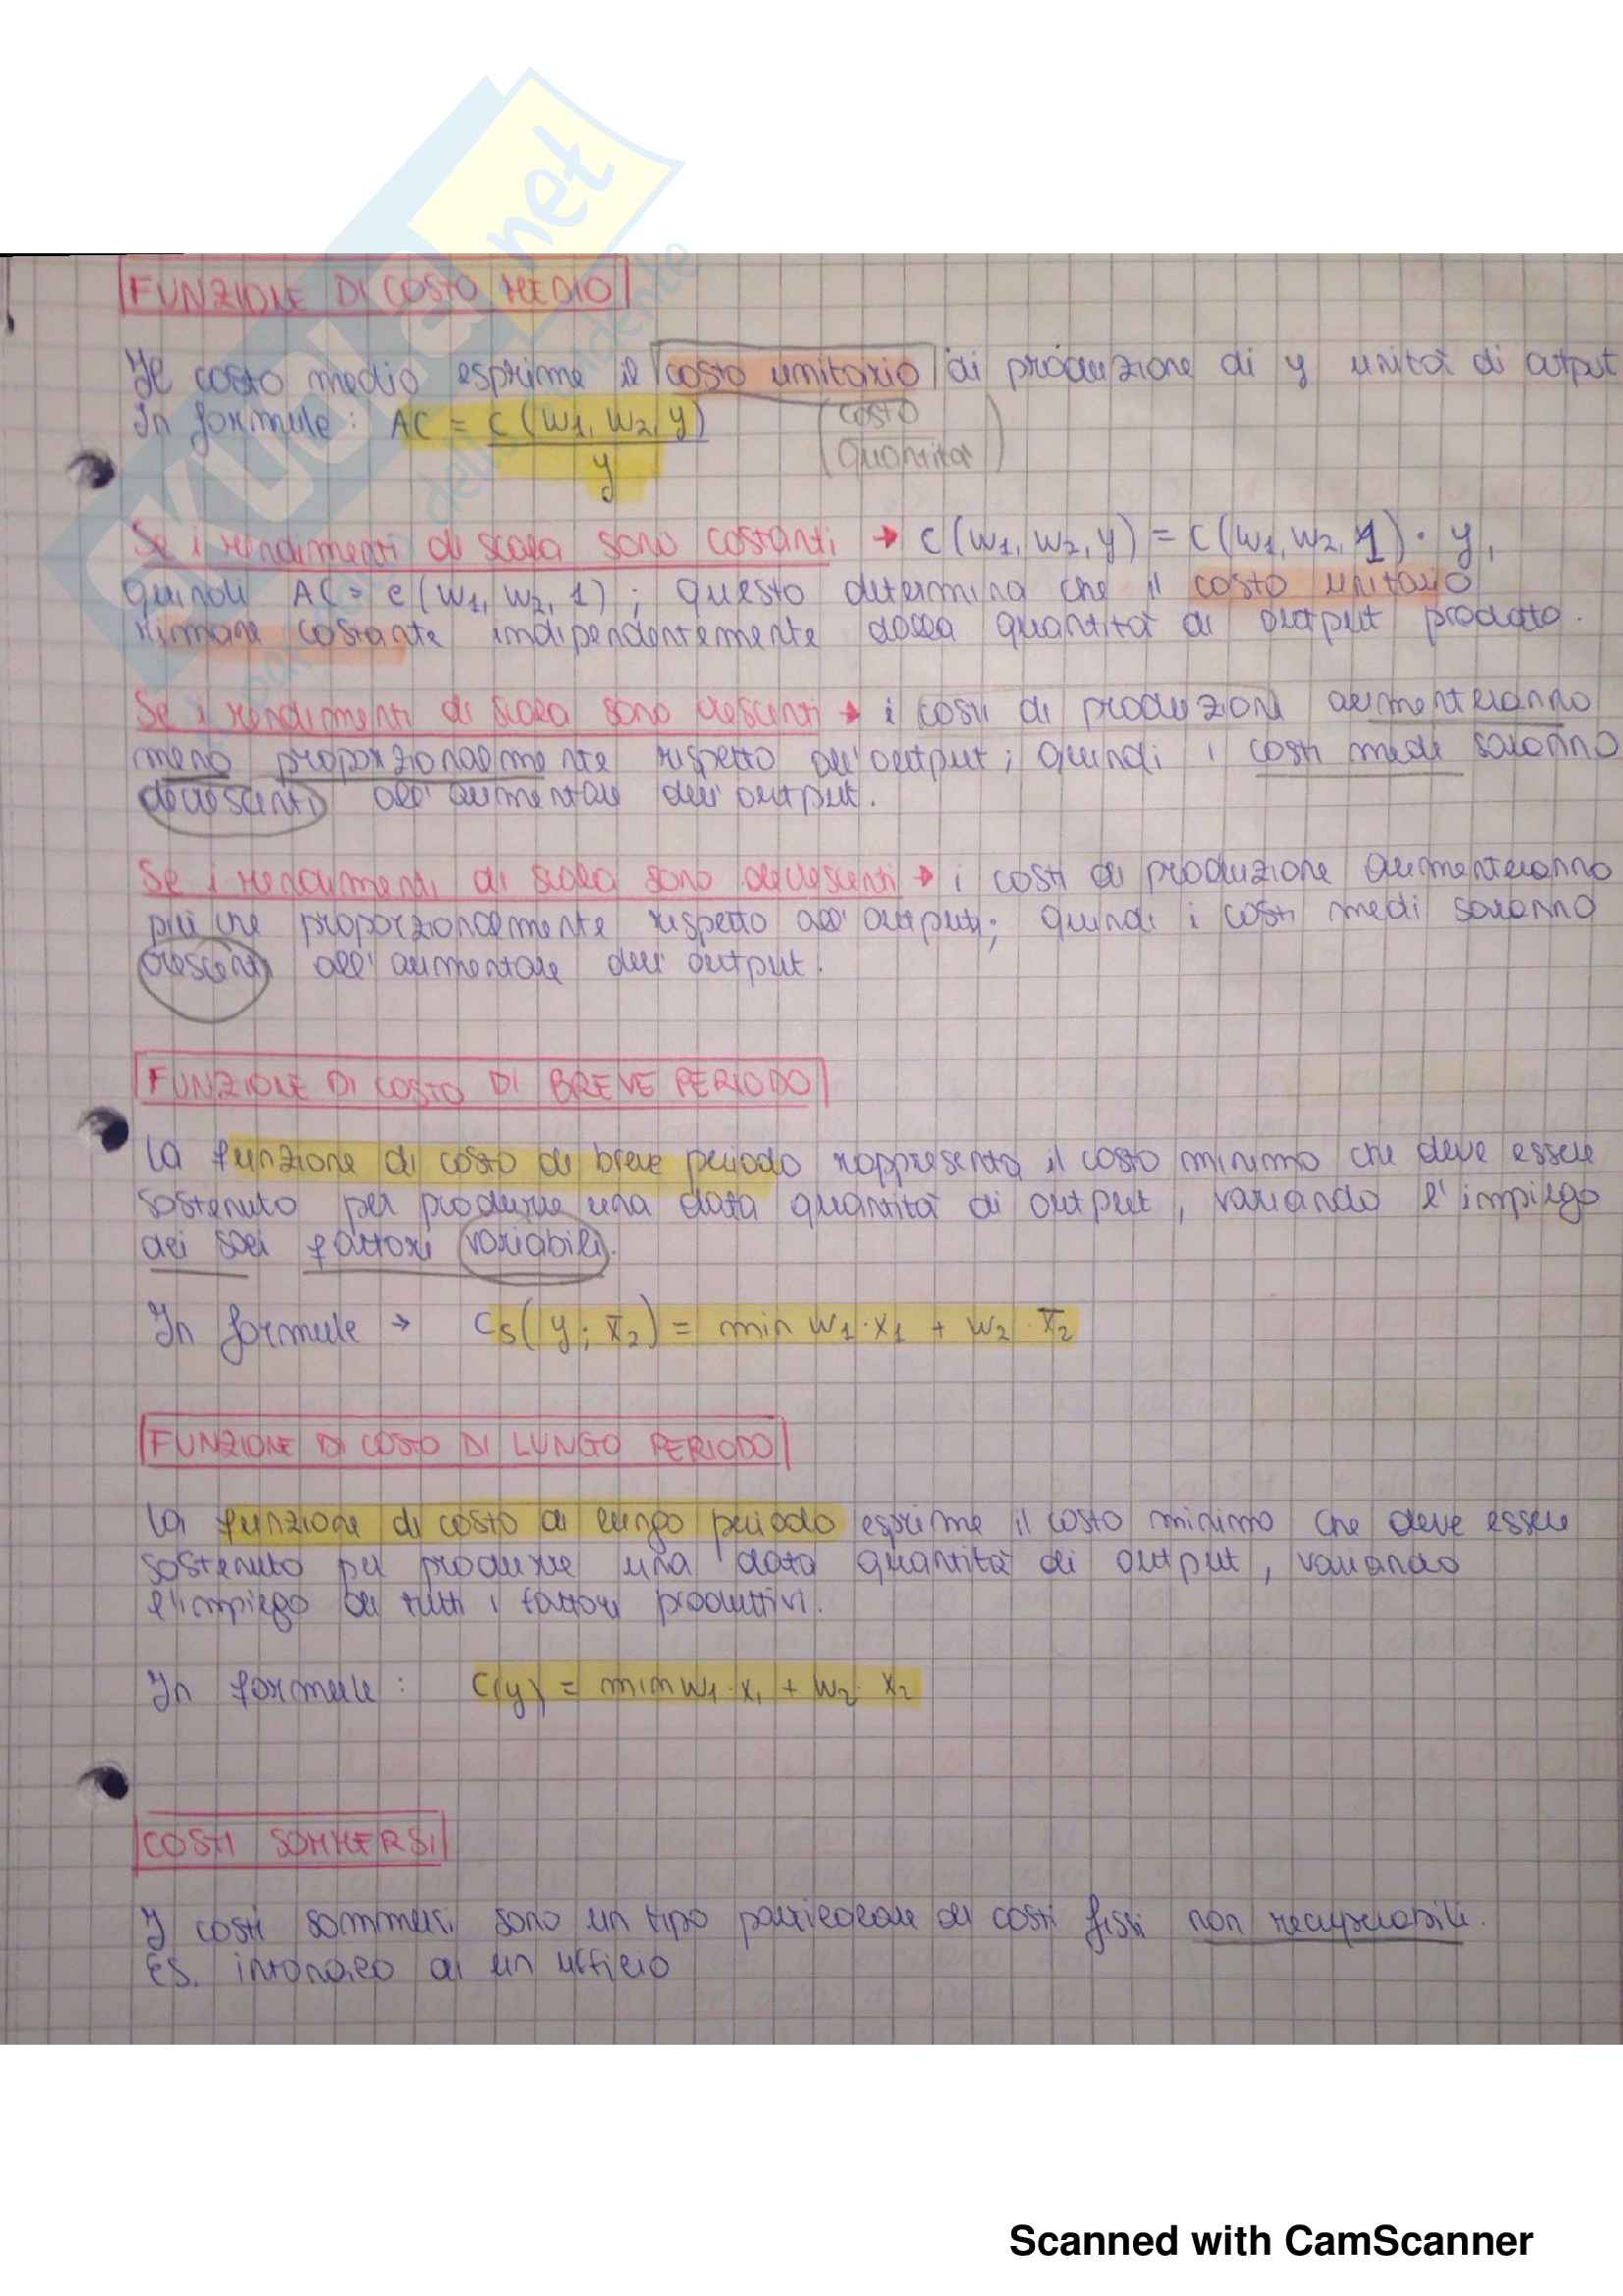 FUNZIONE DI COSTO MEDIO
Il costo medio esprime il costo unitario di produzione di y unità di output
In formule: AC = c(w1, w2, y) / y (costo / quantità)
Se i rendimenti di scala sono costanti → c(w1, w2, y) = c(w1, w2, 1) · y,
quindi AC = c(w1, w2, 1); questo determina che il costo unitario
rimane costante indipendentemente dalla quantità di output prodotto.
Se i rendimenti di scala sono crescenti → i costi di produzioni aumenteranno
meno proporzionalmente rispetto all'output; quindi i costi medi saranno
decrescenti all'aumentare dell'output.
Se i rendimenti di scala sono decrescenti → i costi di produzione aumenteranno
più che proporzionalmente rispetto all'output; quindi i costi medi saranno
crescenti all'aumentare dell'output.
FUNZIONE DI COSTO DI BREVE PERIODO
La funzione di costo di breve periodo rappresenta il costo minimo che deve essere
sostenuto per produrre una data quantità di output, variando l'impiego
dei soli fattori variabili.
In formule → Cs(y; x̄2) = min w1·x1 + w2·x̄2
FUNZIONE DI COSTO DI LUNGO PERIODO
La funzione di costo di lungo periodo esprime il costo minimo che deve essere
sostenuto per produrre una data quantità di output, variando
l'impiego di tutti i fattori produttivi.
In formule: C(y) = min w1·x1 + w2·x2
COSTI SOMMERSI
I costi sommersi sono un tipo particolare di costi fissi non recuperabili.
Es. intonaco di un ufficio
Scanned with CamScanner